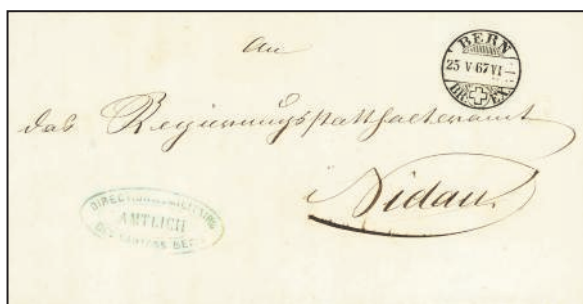 An
BERN
25 V 67 VI
BR. EX.
das Regierungsstatthalteramt
Nidau
AMTLICH
DES CANTONS BERN